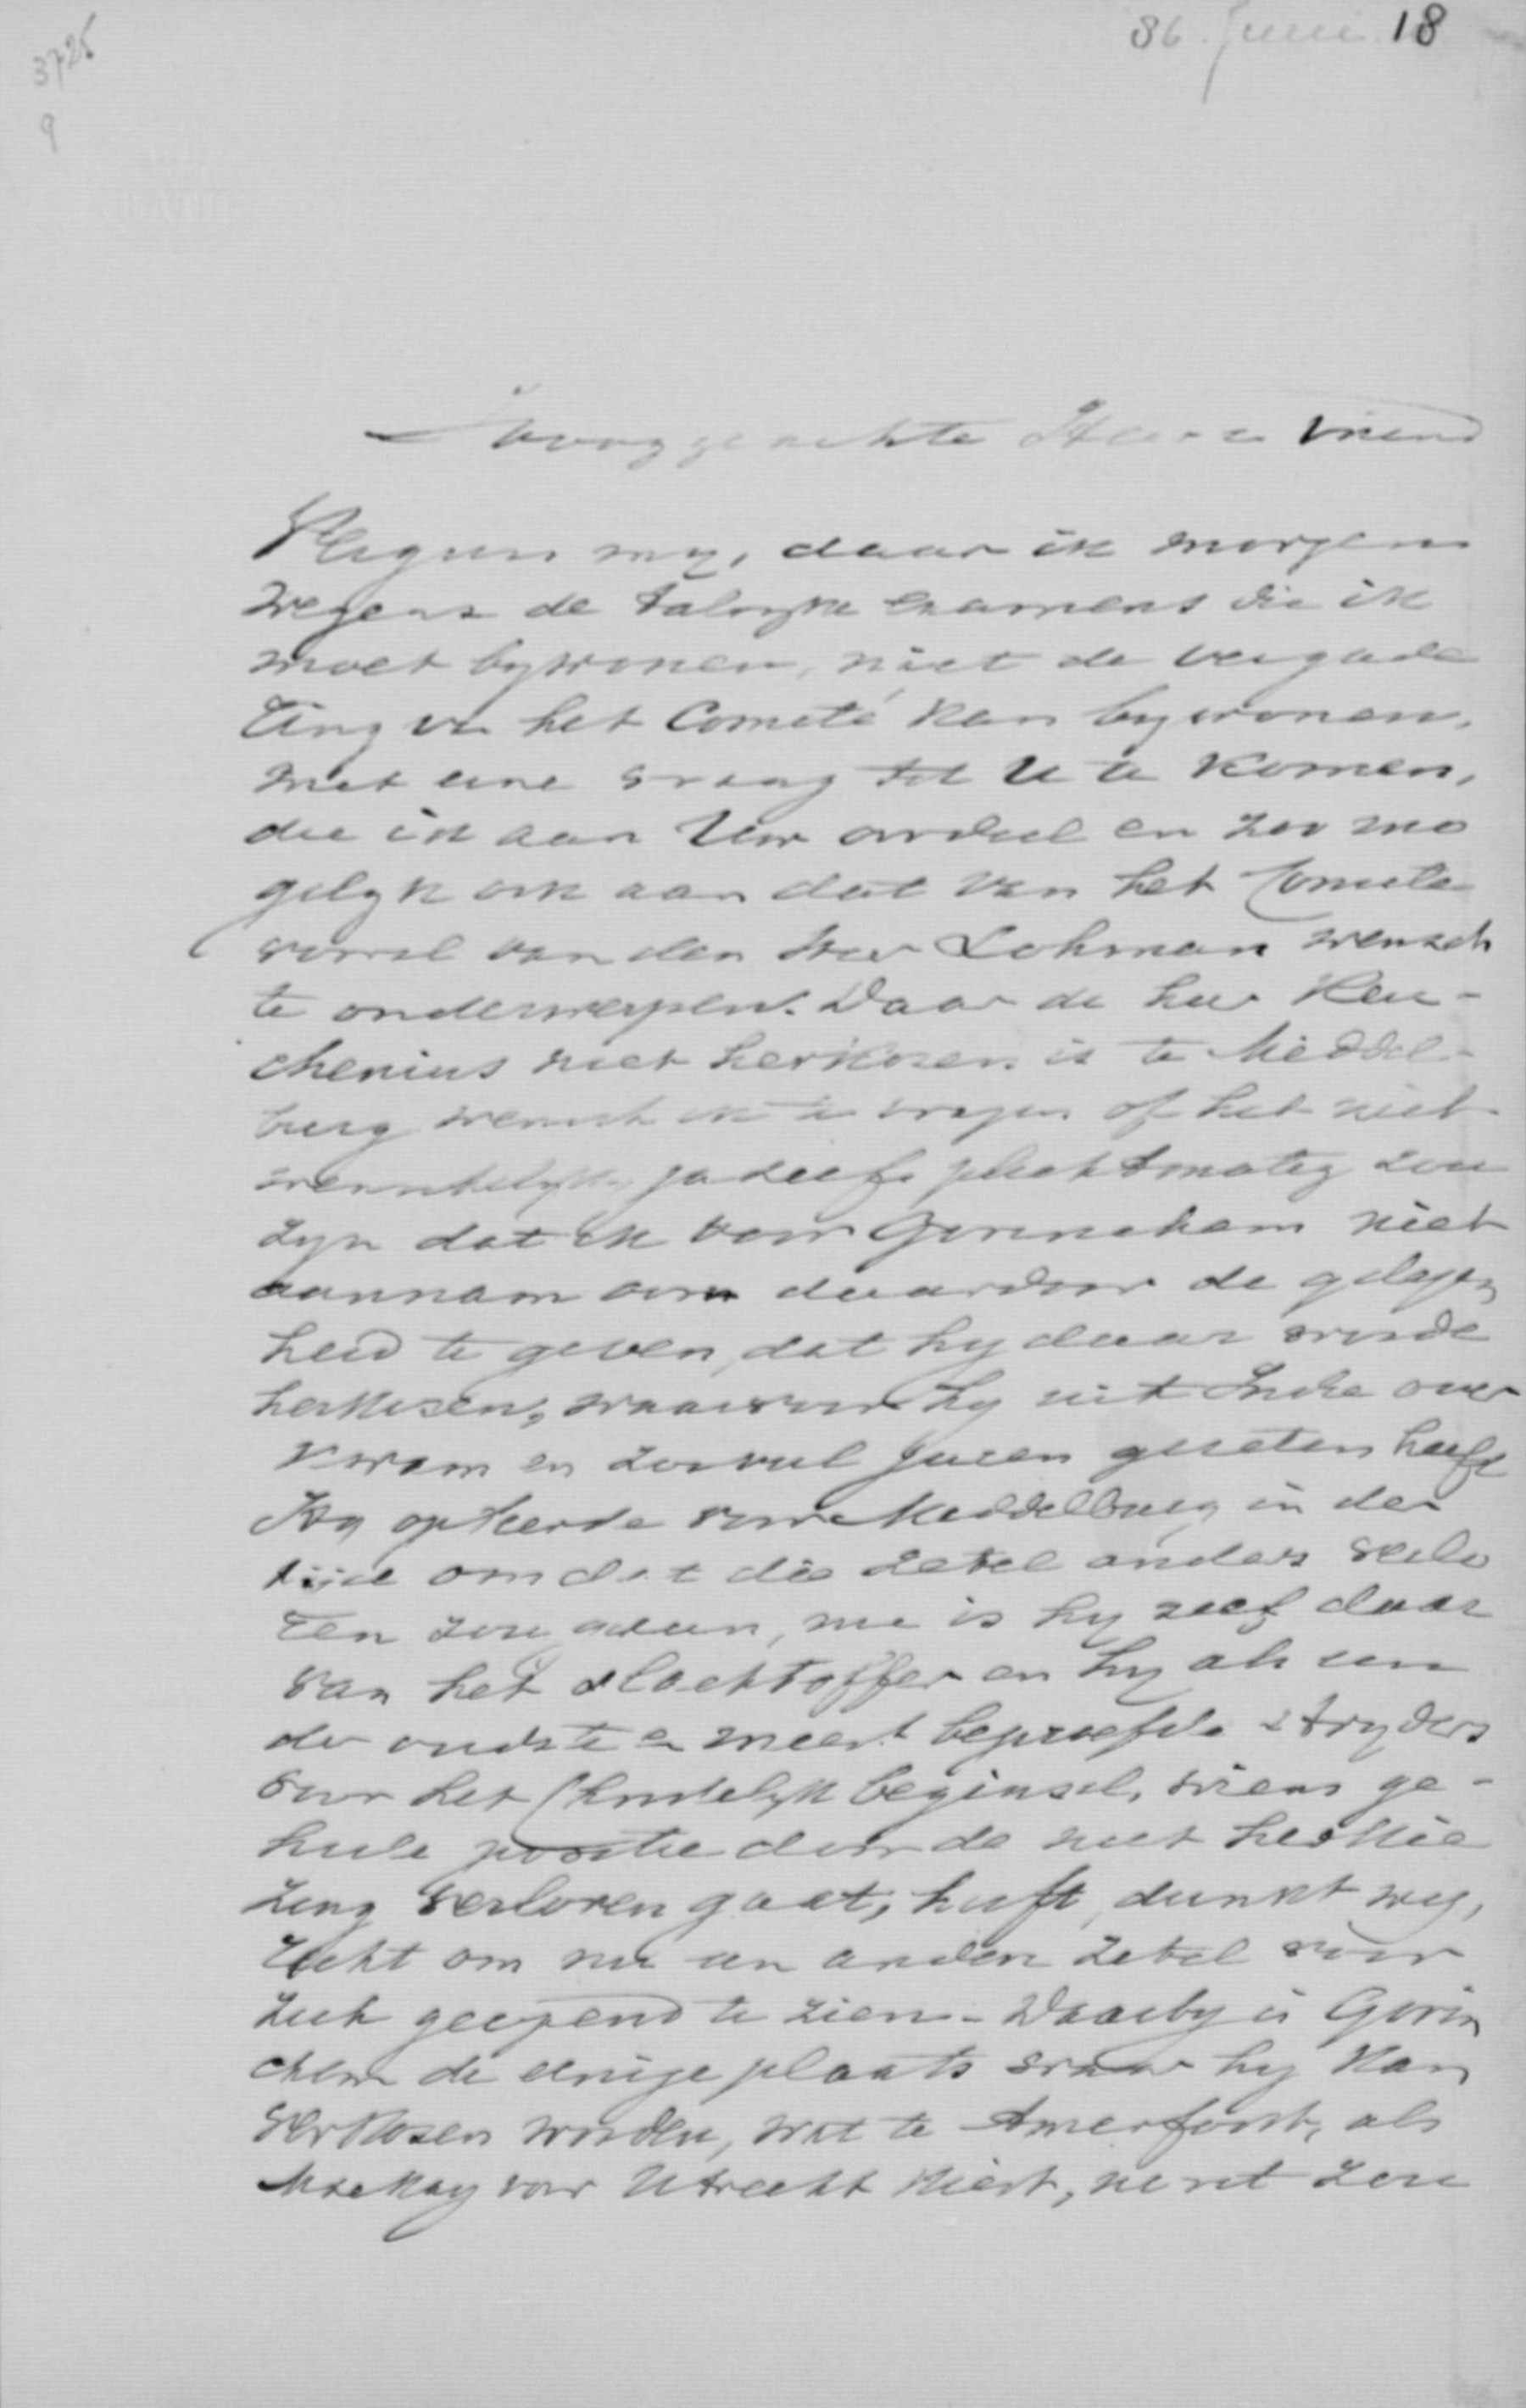 3725
9
86. Juni 18
Hooggeachte Heer en Vriend
Vergun my, daar ik morgen
wegens de talryke examens die ik
moet bywonen, niet de vergade
ring van het Comité kan bywonen,
met eene vraag tot U te komen,
die ik aan Uw oordeel en zoo mo
gelyk ook aan dat van het Comite
vooral van den Heer Lohman wensch
te onderwerpen. Daar de heer Keu-
chenius niet herkozen is te Middel-
burg wensch ik te vragen of het niet
wenschelyk, ja zelfs plichtmatig zou
zyn dat ik voor Gorinchem niet
aannam om daardoor de gelegen
heid te geven, dat hy daar worde
herkozen, waarvoor hy uit Indie over
kwam en zooveel jaren gezeten heeft
Hy opteerde voor Middelburg in der
tijd omdat die zetel anders verlo
ren zou gaan, nu is hy zelf daar
van het slachtoffer en hy als een
der oudste en meest beproefde stryders
voor het Christelyk beginsel, wiens ge-
heele positie door de niet herkie
zing verloren gaat, heeft, dunkt my,
recht om nu een andere zetel voor
zich geopend te zien. Daarby is Gorin
chem de eenige plaats waar hy kan
verkozen worden, wat te Amersfoort, als
MacKay voor Utrecht kiest, niet zou